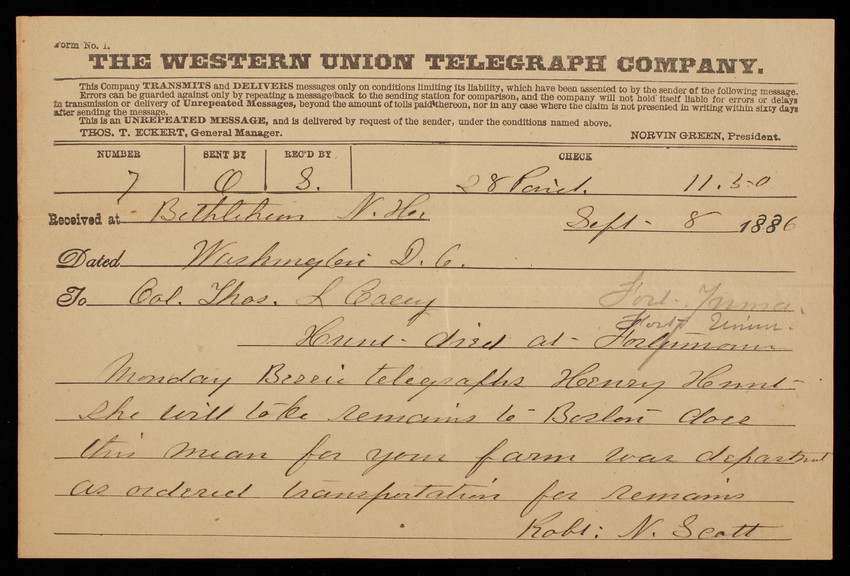 Form No. 1.
THE WESTERN UNION TELEGRAPH COMPANY.
This Company TRANSMITS and DELIVERS messages only on conditions limiting its liability, which have been assented to by the sender of the following message.
Errors can be guarded against only by repeating a message back to the sending station for comparison, and the company will not hold itself liable for errors or delays
in transmission or delivery of Unrepeated Messages, beyond the amount of tolls paid thereon, nor in any case where the claim is not presented in writing within sixty days
after sending the message.
This is an UNREPEATED MESSAGE, and is delivered by request of the sender, under the conditions named above.
THOS. T. ECKERT, General Manager. NORVIN GREEN, President.
NUMBER SENT BY REC'D BY CHECK
7 O S. 28 Paid. 11.50
Received at Bethlehem N. H. Sept 8 1886
Dated Washington D. C.
To Col. Thos. L Casey Fort Yuma.
Fort Union.
Hunt died at
Monday Bessie telegraphs Henry Hunt
she will take remains to Boston does
this mean for your farm war department
as ordered transportation for remains
Robt: N. Scott